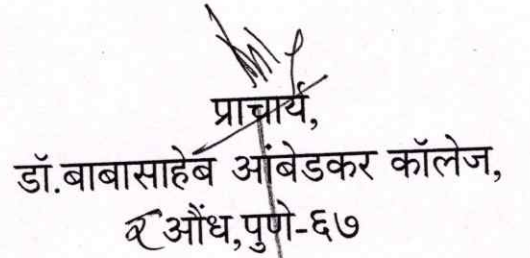 प्राचार्य,
डॉ.बाबासाहेब आंबेडकर कॉलेज,
औंध,पुणे-६७